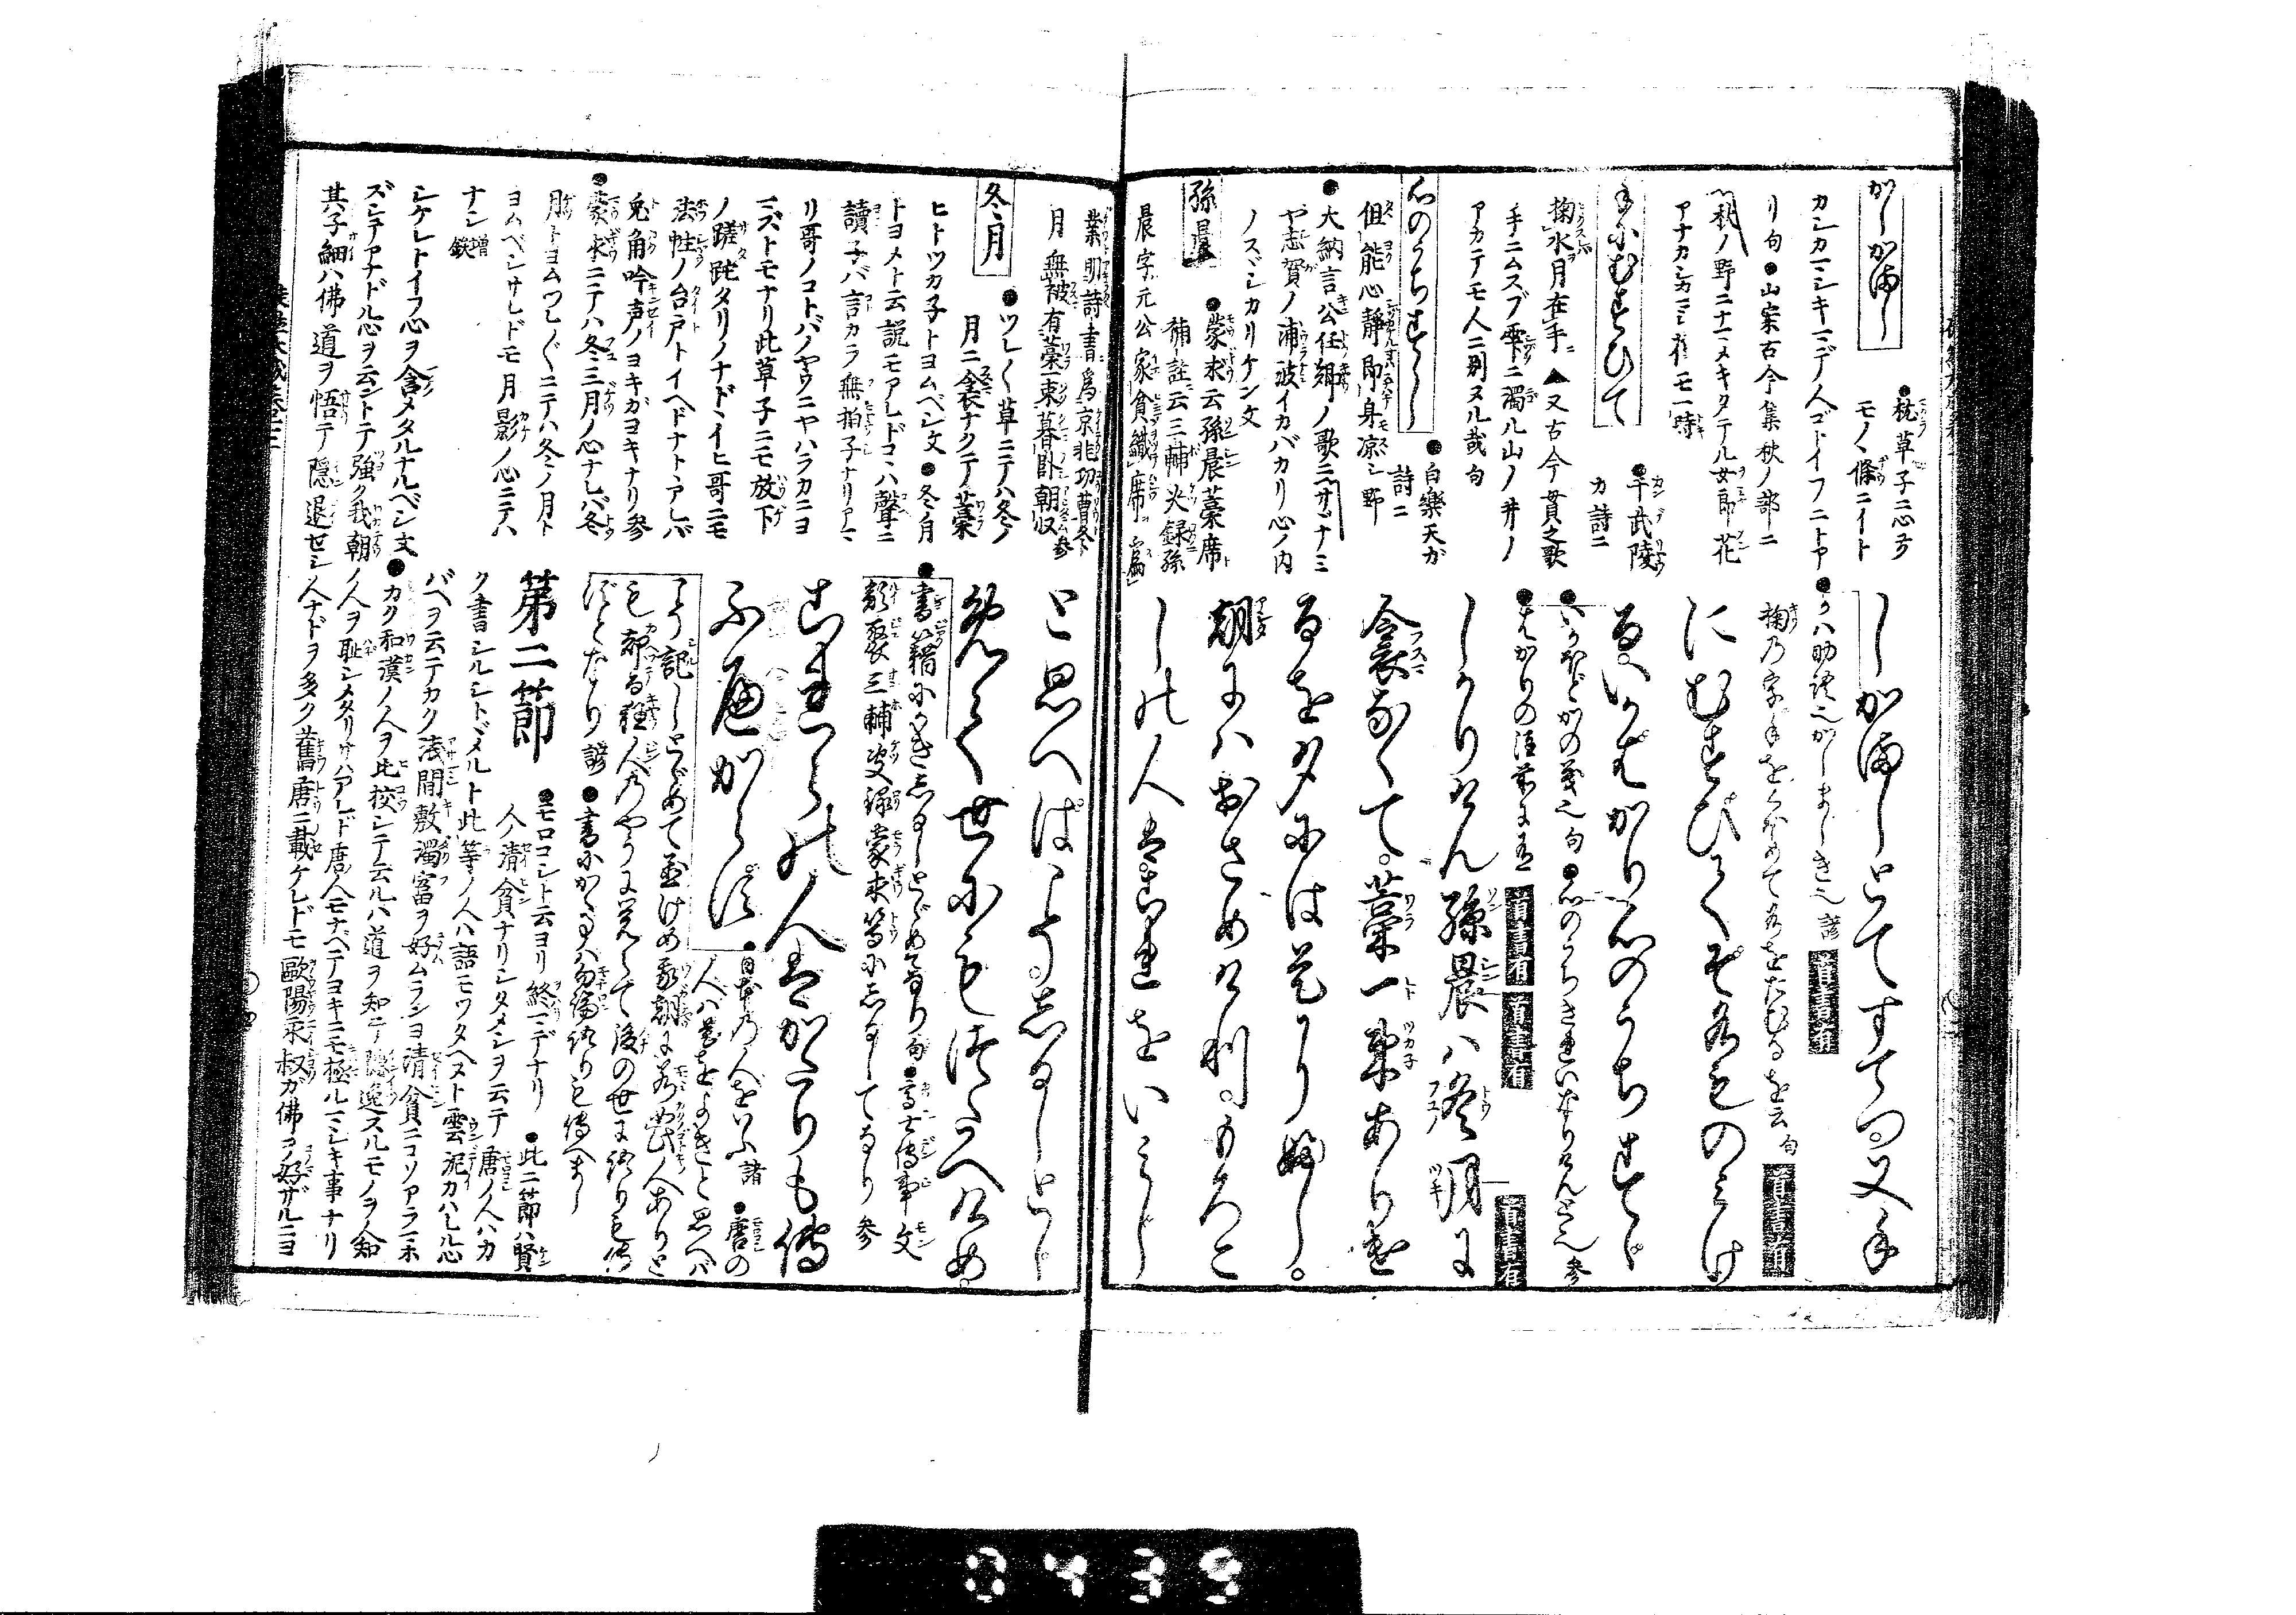 かしかまし
●枕草子ニ心言
モノヽ條ニイト
カシカマシキマデ人ゴトイフニトア
リ句●山案古今集秋ノ部ニ
秋ノ野ニナマメキタテル女郎花
アナカシカマシ花モ一時
手にむすひて
●于武陵
カ詩ニ
掬水月在手▲又古今貫之歌
手ニムスブ雫ニ濁ル山ノ井ノ
アカテモ人ニ別ヌル哉句
心のうちすゝし
●白樂天ガ
詩ニ
但能心靜即身凉シ野
●大納言公任卿ノ歌ニサヾナミ
ヤ志賀ノ浦波イカバカリ心ノ内
ノスヾシカリケン文
孫晨
●蒙求云孫晨藁席
補註云三輔决録孫
晨字元公家貧織席爲
しかましとてすてつ又手
●かハ助語也かしましき也諺
掬の字手をくほめて水をたむるを云句
にむすびてぞ水ものみけ
る。いかばかり心のうちすゞ
●いかほどかの義也句●心のうちきれいなりけんと也参
●はかりの註前に有
しかりけん孫晨ハ冬月に
衾なくて。藁一束ありける
るを夕には是にふし。
朝にハおさめけり。もろこ
しの人はこれをいみじ
業明詩書爲京兆功曹冬
月無被有藁一束暮卧朝収参
冬月
●ツレ〳〵草ニテハ冬ノ
月ニ衾ナクテ藁
ヒトツカ子トヨムベシ文●冬ノ月
トヨメト云説モアレドコヽハ聲ニ
讀子バ言カラ無拍子ナリアマ
リ哥ノコトバノヤウニヤハラカニヨ
マズトモナリ此草子ニモ放下
ノ蹉跎タリノナドヽイヒ哥ニモ
法性ノ台戸トイヘドナトヽアレバ
兎角吟声ノヨキガヨキナリ参
●蒙求ニテハ冬三月ノ心ナレバ冬
月トヨムツレ〳〵ニテハ冬ノ月ト
ヨムベシサレドモ月影ノ心ニテハ
ナシ増鉄
と思へばこそ。しるしとゞ
めて世にもつたへけめ。
●書籍にかきしるしとゞめてなり句●高士傳事文
類聚三輔决録蒙求等にしるしてあり参
これらの人はかたりも傳
ふべからず
●日本の人をいふ諸●唐の
人ハ是をよきと思へバ
第二節
●モロコシト云ヨリ終マデナリ●此二節ハ賢
人ノ清貧ナリシタメシヲ云テ唐ノ人ハカ
ク書シルシトヾメルト此等ノ人ハ語モツタヘヌト雲泥カハレル心
バヘヲ云テカク浅間敷濁富ヲ好ムランヨ清貧ニコソアラマホ
シケレトイフ心ヲ含メタルナルベシ文●カク和漢ノ人ヲ比挍シテ云ルハ道ヲ知テ隠逸スルモノヲ人知
ズシテアナドル心ヲ云ントテ強ク我朝ノ人ヲ耻シメタリサハアレド唐人モナベテヨキニモ極ルマシキ事ナリ
其子細ハ佛道ヲ悟テ隠退セシ人ナドヲ多ク舊唐ニ載ケレドモ歐陽永叔ガ佛ヲ好ザルニヨ
0439